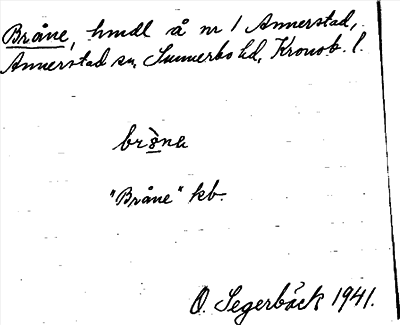 Bråne, hmdl å nr 1 Annerstad,
Annerstad sn, Sunnerbo hd, Kronob. l.
"Bråne" kb.
O. Segerbäck 1941.